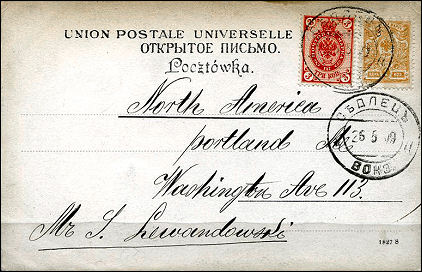 UNION POSTALE UNIVERSELLE
ОТКРЫТОЕ ПИСЬМО.
Pocztówka.
СѢДЛЕЦЪ
26 5 09
ВОКЗ.
North America
portland M.
Washington Ave 113.
Mr S. Lewandowski
1827 S